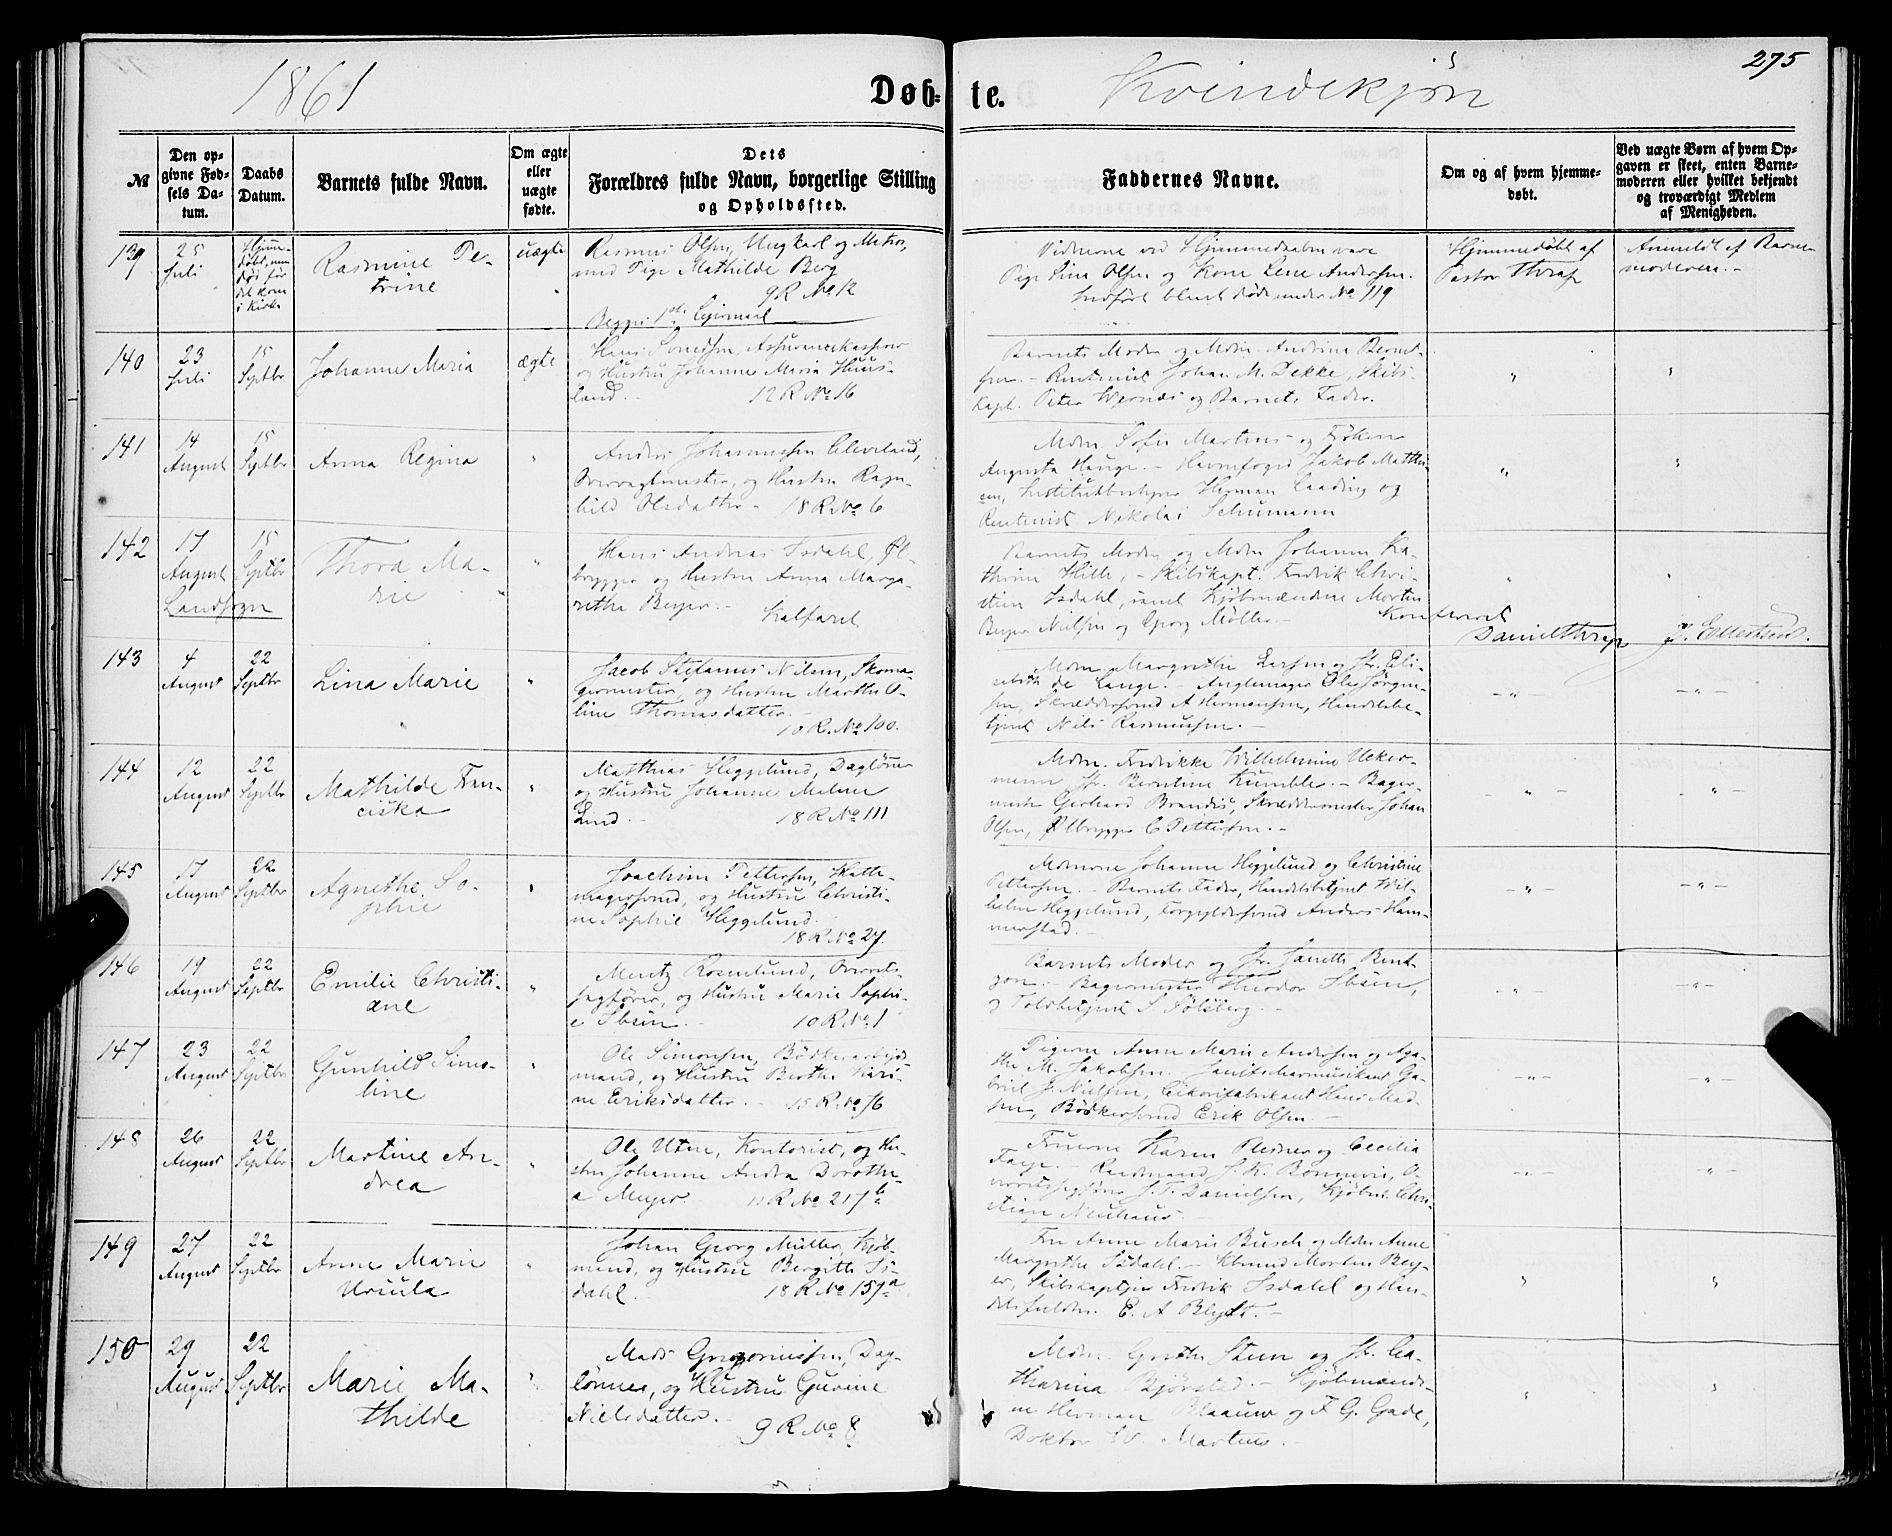 1861
Døb-
te.
Kvindekjøn
275
№
Den op-
givne Fød-
sels Da-
tum.
Daabs
Datum.
Barnets fulde Navn.
Om ægte
eller
uægte
fødte.
Dets
Forældres fulde Navn, borgerlige Stilling
og Opholdssted.
Faddernes Navne.
Om og af hvem hjemme-
døbt.
Ved uægte Børn af hvem Op-
gaven er skeet, enten Barne-
moderen eller hvilket bekjendt
og troværdigt Medlem
af Menigheden.
139
25
Juli
Hjemme-
døbt, men
død før
det kom
i Kirke
Rasmine Pe-
trine
uægte
Rasmus Olsen, Ungkarl og Matros,
med Pige Mathilde Berg
9 R № 12
Begges 1ste Leiermaal
Vidnerne ved Hjemmedaaben vare
Pige Lina Olsen og Kone Lene Andersen.
Indført blandt døde under № 119
Hjemmedøbt af
Pastor Thrap
Anmeldt af Barne-
moderen.-
140
23
Juli
15
Septbr
Johanne Maria
ægte
Hans Svendsen, Assurancekasserer
og Hustru Johanne Maria Huus-
land.
12 R № 16
Barnets Moder og Mdm Andrina Bernt-
sen.- Rentenist Johan M. Dekke, Skibs-
kapt. Peter Wernæs og Barnets Fader.
141
14
August
15
Septbr
Anna Regina
Anders Johannessen Cleveland,
Overvagtmester, og Hustru Ragn-
hild Olsdatter -
18 R № 6
Mdm Sofie Martens og Frøken
Augusta Hauge.- Havnefoged Jakob Matthi-
sen, Institutbestyrer Herman Laading og
Rentenist Nikolai Schumann
142
17
August
Landsogn
15
Septbr
Thora Ma-
rie
Hans Andreas Isdahl, Øl-
brygger og Hustru Anna Marga-
rethe Beyer.-
Kalfaret
Barnets Moder og Mdm Johanne Ka-
thrine Hille,- Skibskapt. Fredrik Chri-
stian Isdahl, samt Kjøbmændene Morten
Beyer Nielsen og Georg Möller.-
Konfereret
Daniel Thrap
J. Ellertsen.
143
4
August
22
Septbr
Lina Marie
Jacob Stefanus Nilsen, Skoma-
germester, og Hustru Marthe O-
line Thomasdatter.-
10 R. № 100.
Mdm. Margrethe Larsen og Jr. Eli-
sabeth de Lange.- Anglemager Ole Jørgen-
sen, Skræddersvend A Hermansen, Handelsbe-
tjent Nils Rasmussen.-
144
12
August
22
Septbr
Mathilde Fran-
ciska
Matthias Heggelund, Dagløner
og Hustru Johanne Malene
Lund.-
18 R № 111
Mdm. Fredrikke Wilhelmine Ucker-
mann, Jr. Berntine Kümble.- Bager-
mester Gerhard Brandis, Skræddermester Johan
Olsen, Ølbrygger C Pettersen.-
145
17
August
22
Septbr
Agnethe So-
phie
Joachim Pettersen, Hatte-
magersvend, og Hustru Christi-
ne Sophie Heggelund.
18 R № 27.
Mdmerne Johanne Heggelund og Christine
Pettersen.- Barnets Fader, Handelsbetjent Wil-
helm Heggelund, Forgyldersvend Anders Ham-
merstad.-
146
19
August
22
Septbr
Emilie Christi-
ane
Mentz Rosenlund, Overrets-
sagfører, og Hustru Marie Sophi-
e Ibsen.-
10 R № 1
Barnets Moder og Jr. Janette Bent-
zon.- Bagermester Theodor Ibsen,
og Toldbetjent S Sølsberg.-
147
23
August
22
Septbr
Gunhild Simo-
line
Ole Simonsen, Bødkerarbeids-
mand, og Hustru Berthe Kari-
ne Eriksdatter.-
15 R № 76
Pigerne Anne Marie Andersen og Aga-
the M. Jakobsen.- Janitsharmusikant Ga-
briel J. Nielsen, Cikorifabrikant Hans Mad-
sen, Bødkersvend Erik Olsen.-
148
26
August
22
Septbr
Martine An-
drea
Ole Utne, Kontorist, og Hu-
stru Johanne Andrea Dorothe-
a Meyer.-
11 R № 217 b
Fruerne Karen Plesner og Cecilia
Faye.- Raadmand J. K. Bonnevie, O-
verretssagfører J. T. Danielsen, Kjøbm. Chri-
stian Neuhaus.-
149
27
August
22
Septbr
Anne Marie
Ursula
Johan Georg Müller, Kjøb-
mand, og Hustru Bergitte Is-
dahl.
18 R № 157 a
Fru Anne Marie Busch og Mdm Anne
Margrethe Isdahl.- Kbmand Morten Bey-
er, Skibskaptein Fredrik Isdahl og Han-
delsfuldm. E. A Blytt.-
150
29
August
22
Septbr
Marie Ma-
thilde
Mads Gregoriussen, Dag-
lønner, og Hustru Gurine
Nielsdatter.-
9 R № 8
Mdm. Grethe Steen og Jr. Ca-
tharina Bjørstad.- Kjøbmænde-
ne Herman Blaauw og F. G. Gade,
Doktor W. Martens.-